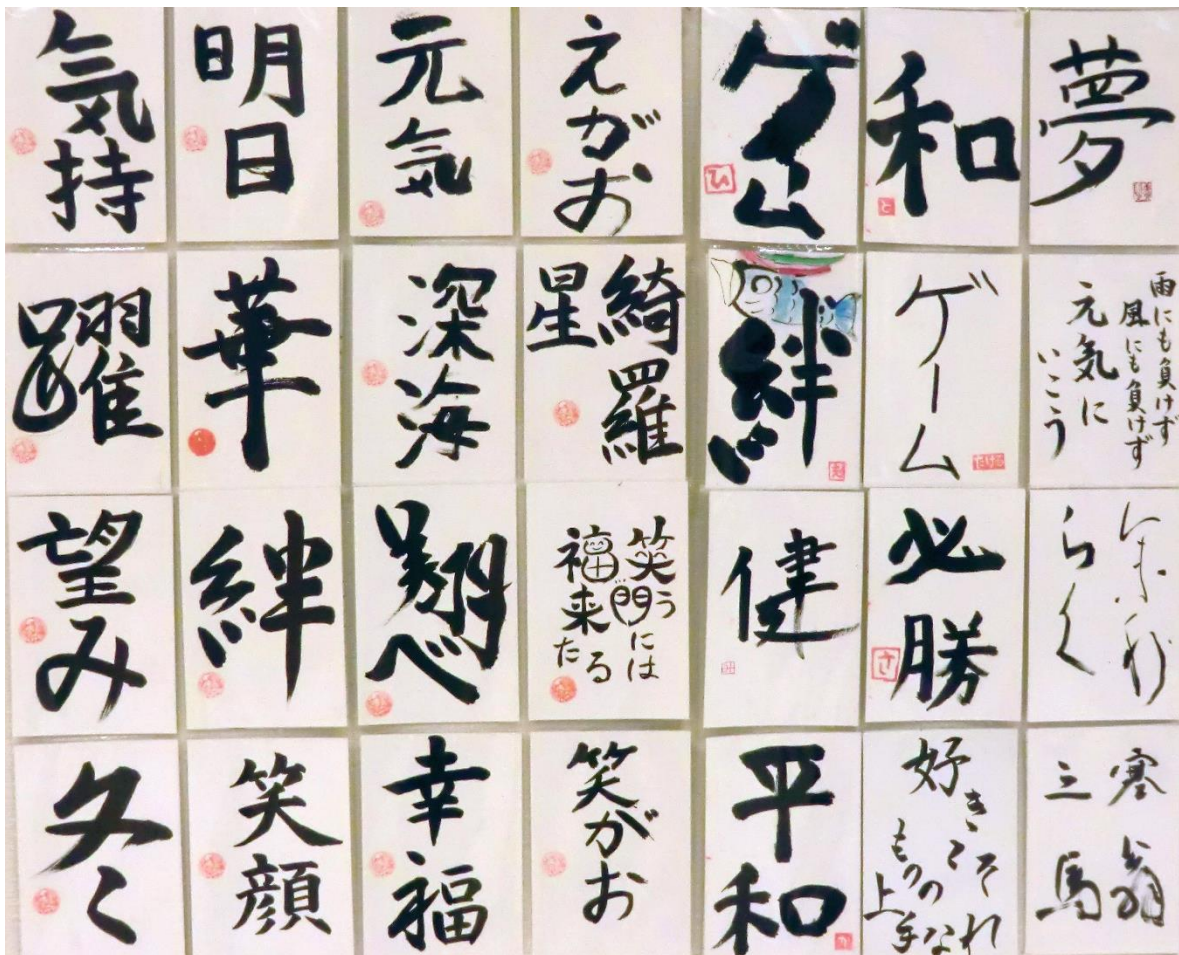 気持
明日
元気
えがお
ゲーム
ひ
和
と
夢
躍
華
深海
綺羅
星
絆
ゲーム
雨にも負けず
風にも負けず
元気に
いこう
望み
絆
翔べ
笑う門には
福来たる
健
必勝
さ
らく
冬
笑顔
幸福
笑がお
平和
好きこそ
ものの
上手なれ
塞翁
之馬